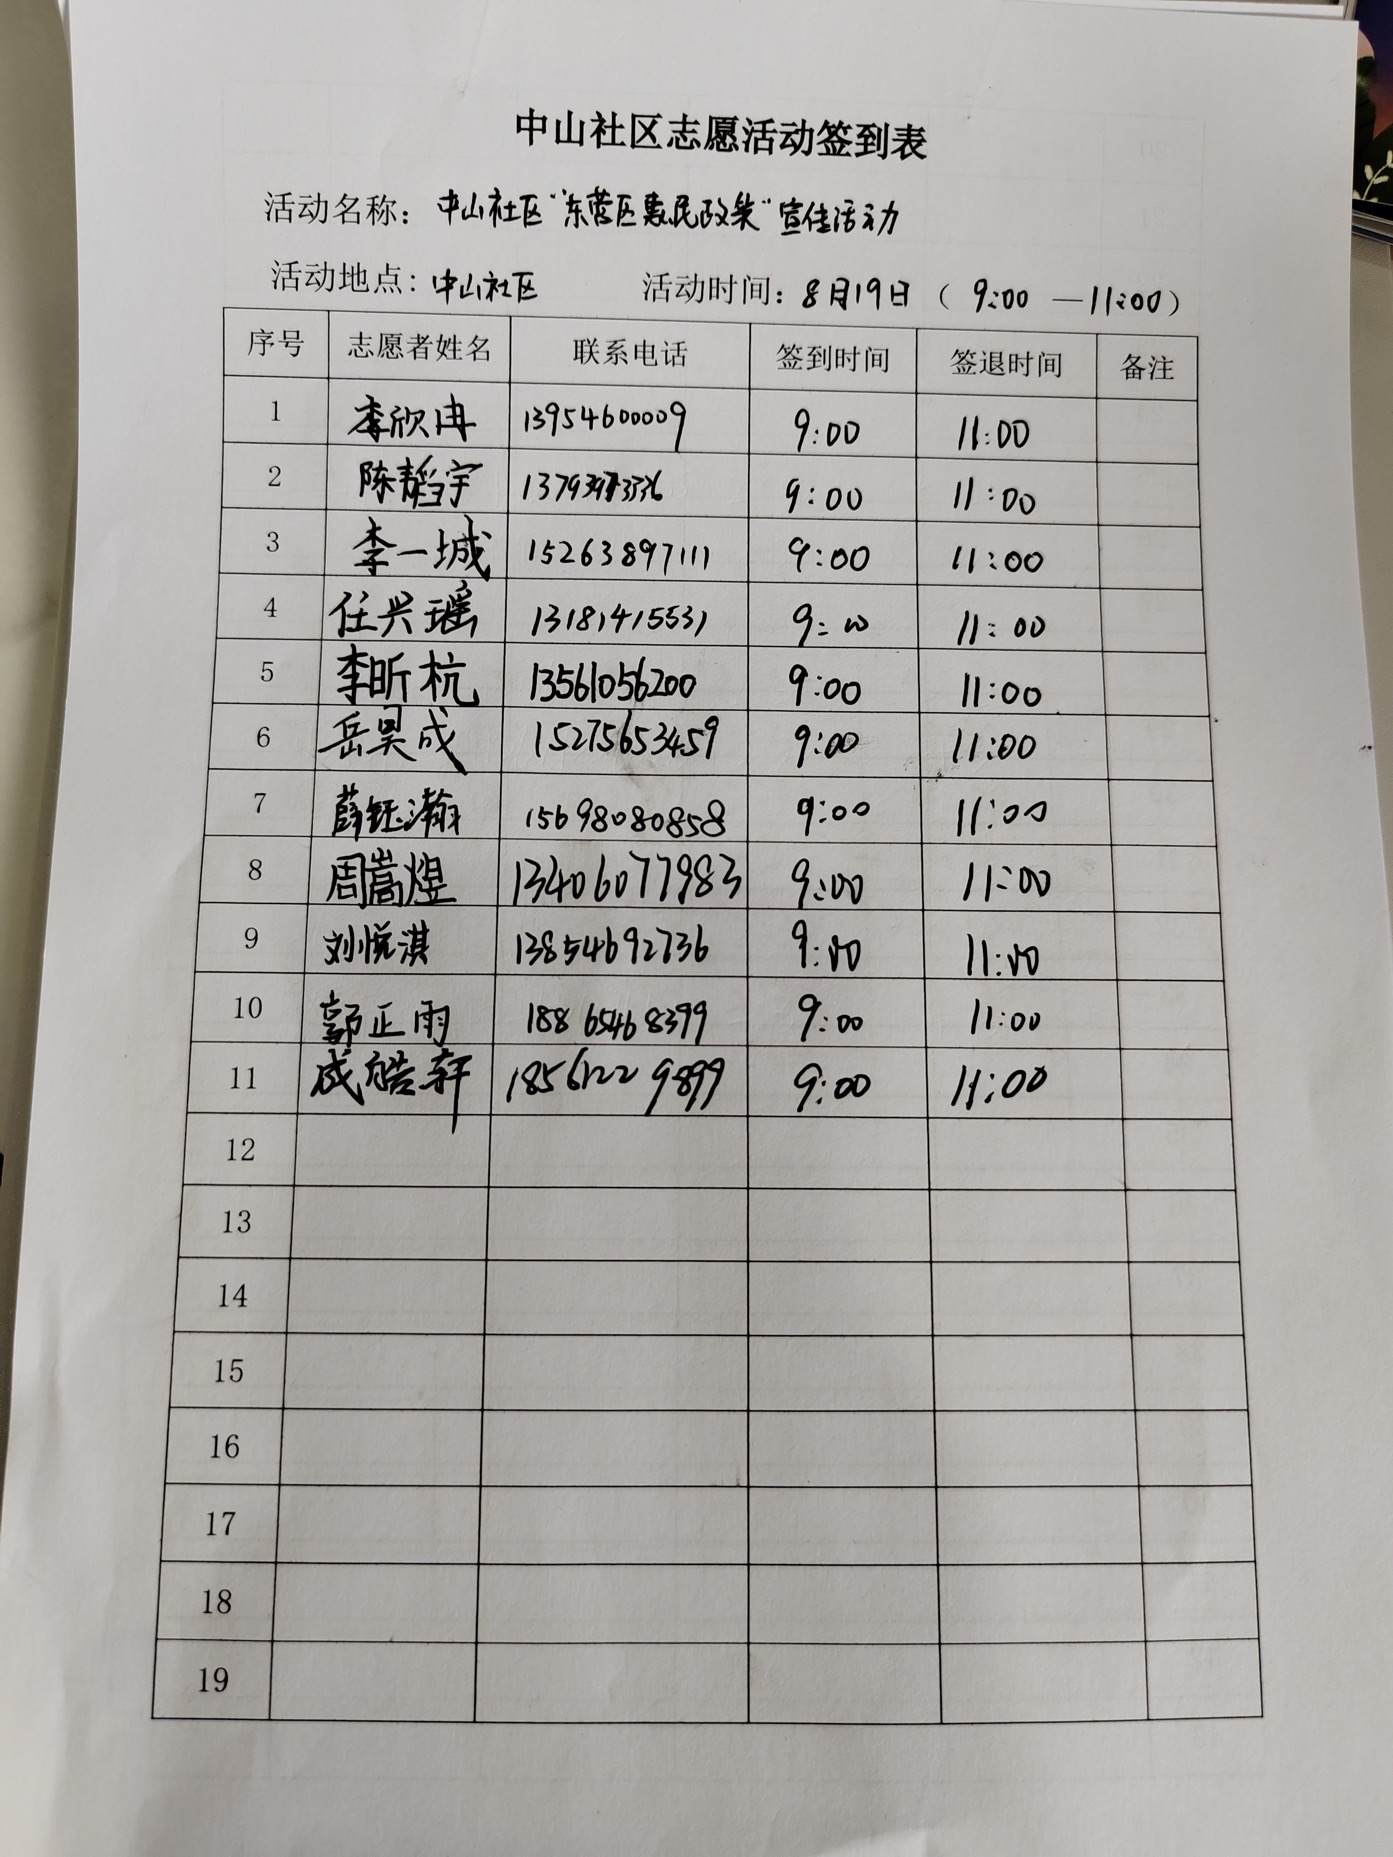 中山社区志愿活动签到表
活动名称：中山社区“东营区惠民政策”宣传活动
活动地点：中山社区 活动时间：8月19日（9:00—11:00）
序号 志愿者姓名 联系电话 签到时间 签退时间 备注
1 李欣冉 13954600009 9:00 11:00
2 陈韬宇 9:00 11:00
3 李一城 15263897111 9:00 11:00
4 任兴瑶 13181415531 9:00 11:00
5 李昕杭 13561056200 9:00 11:00
6 岳昊成 15275653459 9:00 11:00
7 薛钰瀚 15698080858 9:00 11:00
8 周嵩煜 13406077983 9:00 11:00
9 刘悦淇 13854692736 9:00 11:00
10 郭正雨 18865468399 9:00 11:00
11 成皓轩 18561229899 9:00 11:00
12
13
14
15
16
17
18
19